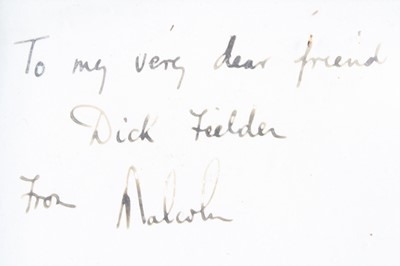 To my very dear friend
Dick Fielder
From Malcolm